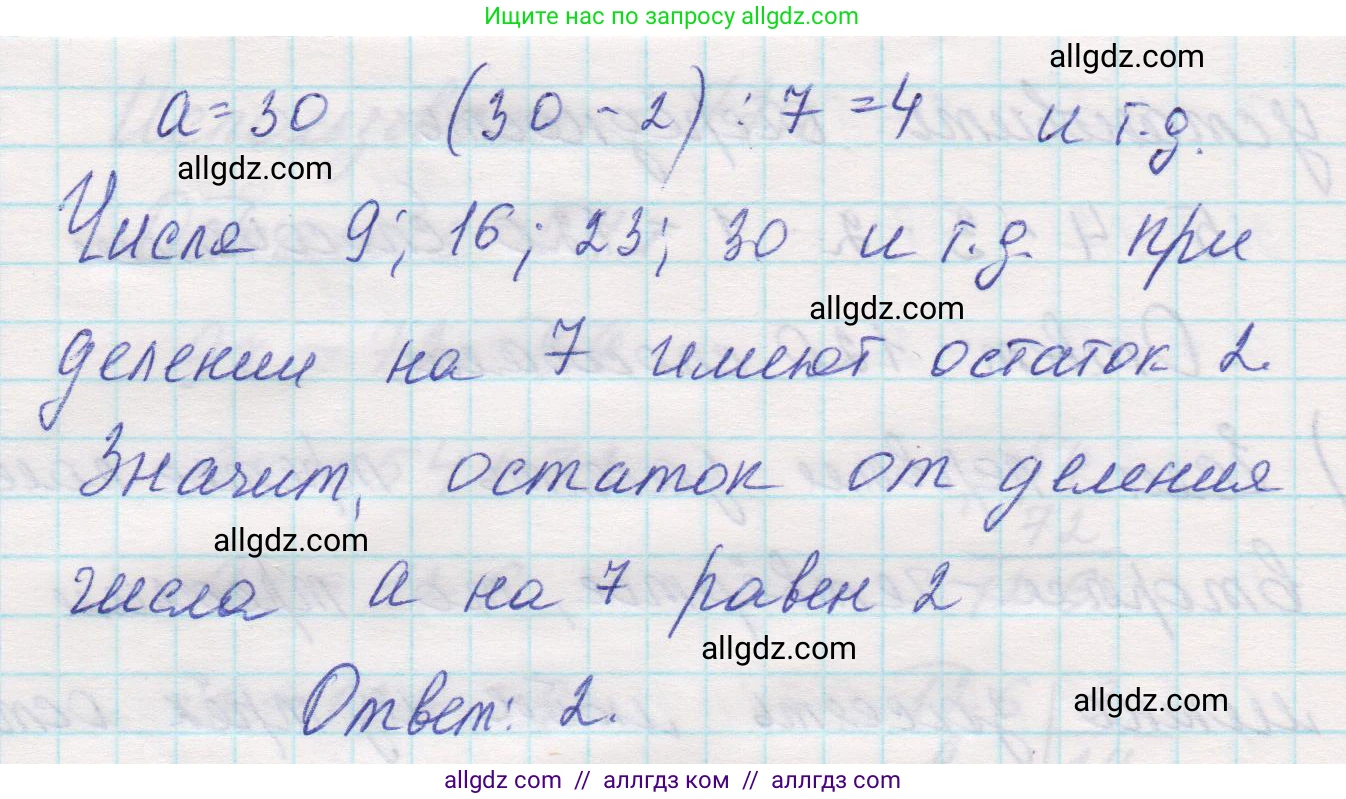 Ищите нас по запросу allgdz.com
allgdz.com
a=30 (30-2):7=4 и т.д.
allgdz.com
Числа 9; 16; 23; 30 и т.д. при
allgdz.com
делении на 7 имеют остаток 2.
Значит, остаток от деления
allgdz.com
числа a на 7 равен 2
allgdz.com
allgdz.com
Ответ: 2.
allgdz.com // аллгдз ком // аллгдз.com